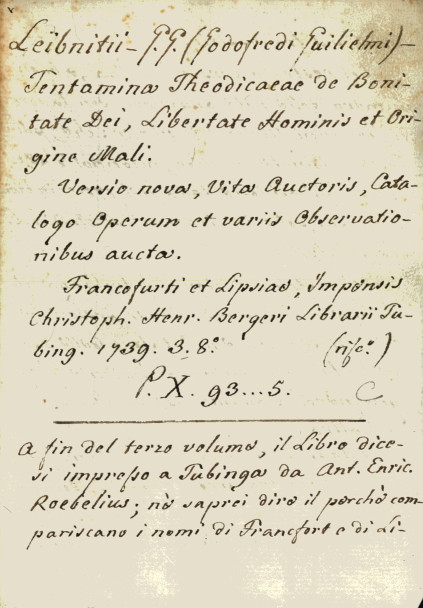 Leibnitii - G.G. (Godofredi Guilielmi) -
Tentamina Theodicaeae de Boni-
tate Dei, Libertate Hominis et Ori-
gine Mali.
Versio nova, Vita Auctoris, Cata-
logo Operum et variis Observatio-
nibus aucta.
Francofurti et Lipsiae, Impensis
Christoph. Henr. Bergeri Librarii Tu-
bing. 1739. 3. 8.º
P. X. 93...5. C
A fin del terzo volume, il Libro dice-
si impresso a Tubinga da Ant. Enric.
Roebelius; nè saprei dire il perchè com-
pariscano i nomi di Francfort e di Li-